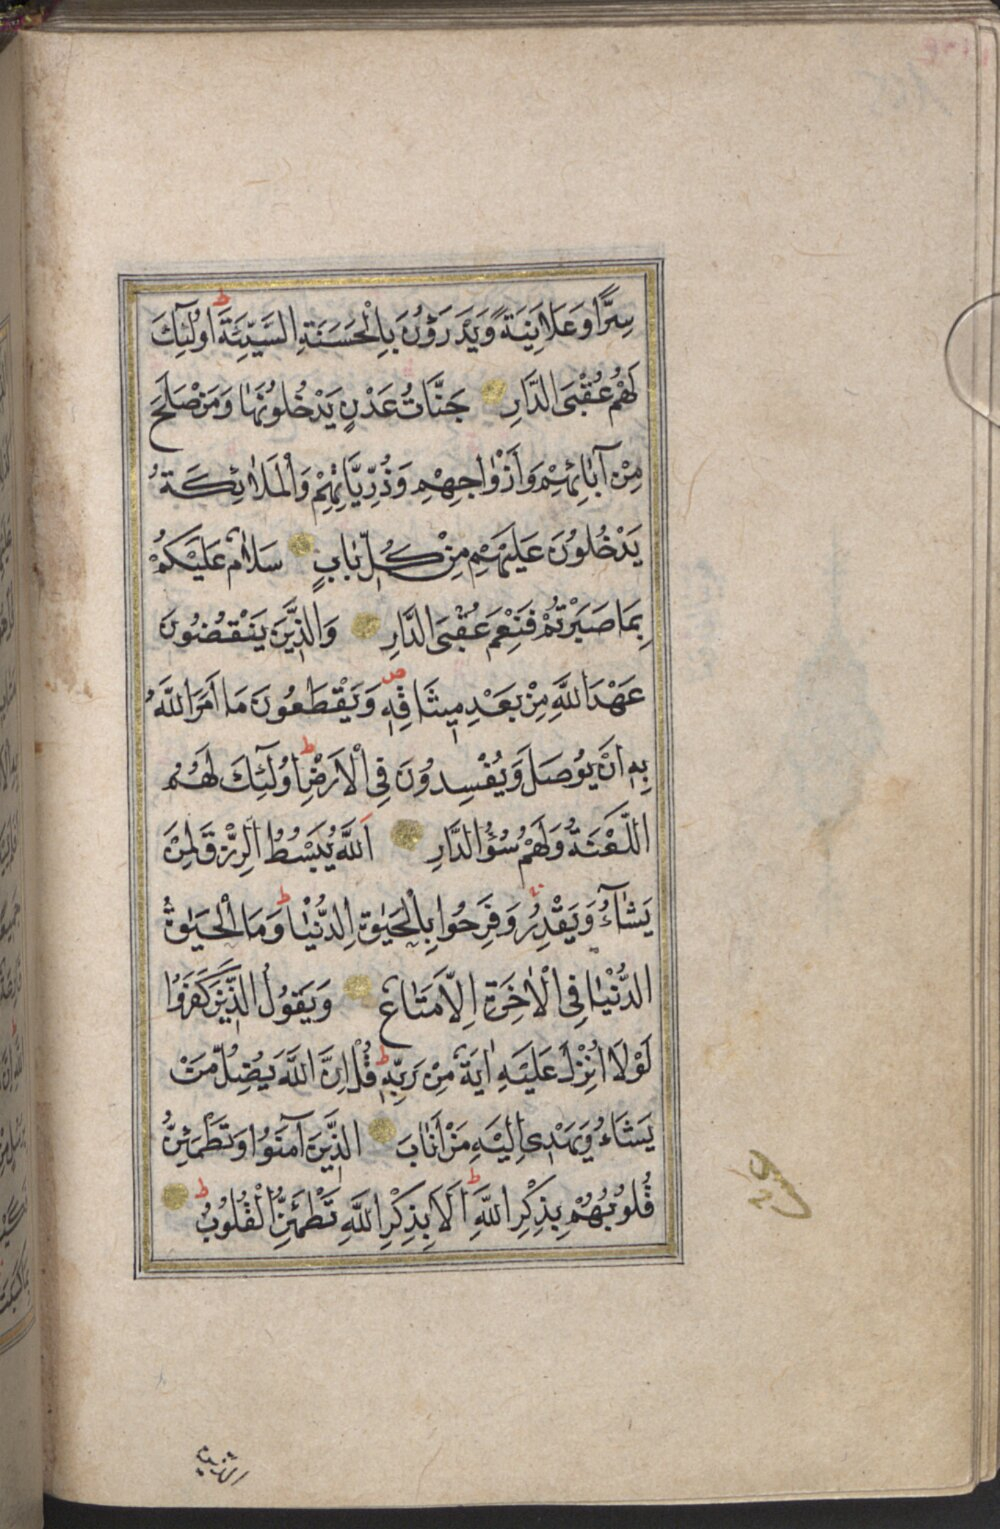 سِرًّا وَعَلَانِيَةً وَيَدْرَؤُنَ بِالْحَسَنَةِ السَّيِّئَةَ ط اُولٰٓئِكَ
لَهُمْ عُقْبَى الدَّارِ جَنَّاتُ عَدْنٍ يَدْخُلُونَهَا وَمَنْ صَلَحَ
مِنْ آبَائِهِمْ وَاَزْوَاجِهِمْ وَذُرِّيَّاتِهِمْ وَالْمَلَائِكَةُ
يَدْخُلُونَ عَلَيْهِمْ مِنْ كُلِّ بَابٍ سَلَامٌ عَلَيْكُمْ
بِمَا صَبَرْتُمْ فَنِعْمَ عُقْبَى الدَّارِ وَالَّذِينَ يَنْقُضُونَ
عَهْدَ اللَّهِ مِنْ بَعْدِ مِيثَاقِهِ ص وَيَقْطَعُونَ مَا اَمَرَ اللَّهُ
بِهِ اَنْ يُوصَلَ وَيُفْسِدُونَ فِى الْاَرْضِ ط اُولٰٓئِكَ لَهُمُ
اللَّعْنَةُ وَلَهُمْ سُؤُ الدَّارِ اَللَّهُ يَبْسُطُ الرِّزْقَ لِمَنْ
يَشَآءُ وَيَقْدِرُ وَفَرِحُوا بِالْحَيٰوةِ الدُّنْيَا ط وَمَا الْحَيٰوةُ
الدُّنْيَا فِى الْاٰخِرَةِ اِلَّا مَتَاعٌ وَيَقُولُ الَّذِينَ كَفَرُوا
لَوْلَا اُنْزِلَ عَلَيْهِ اٰيَةٌ مِنْ رَبِّهِ ط قُلْ اِنَّ اللَّهَ يُضِلُّ مَنْ
يَشَاءُ وَيَهْدِى اِلَيْهِ مَنْ اَنَابَ الَّذِينَ آمَنُوا وَتَطْمَئِنُّ
قُلُوبُهُمْ بِذِكْرِ اللَّهِ ط اَلَا بِذِكْرِ اللَّهِ تَطْمَئِنُّ الْقُلُوبُ ط
الذين